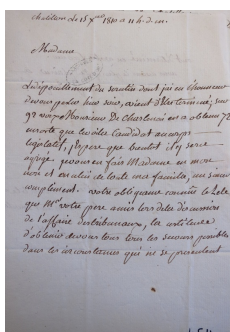 Chatillon Le 15 xbre 1810 a 11 h. d. m.
Madame
Le dépouillement du scrutin dont j'ai eu l'honneur
de vous parler hier soir, vient d'être terminé; sur
97 Monsieur De a obtenu 72
en sorte que le candidat au corps
legislatif, j'espere que bientot il y sera
je vous en fais Madame en mon
nom et en celui de toute ma famille, un sincere
compliment. votre obligeance le Zele
que Mr votre pere a mis lors de la discussion
de l'affaire des tribunaux, la certitude
d'obtenir de vous tous les secours possibles
dans les circonstances qui se presentent